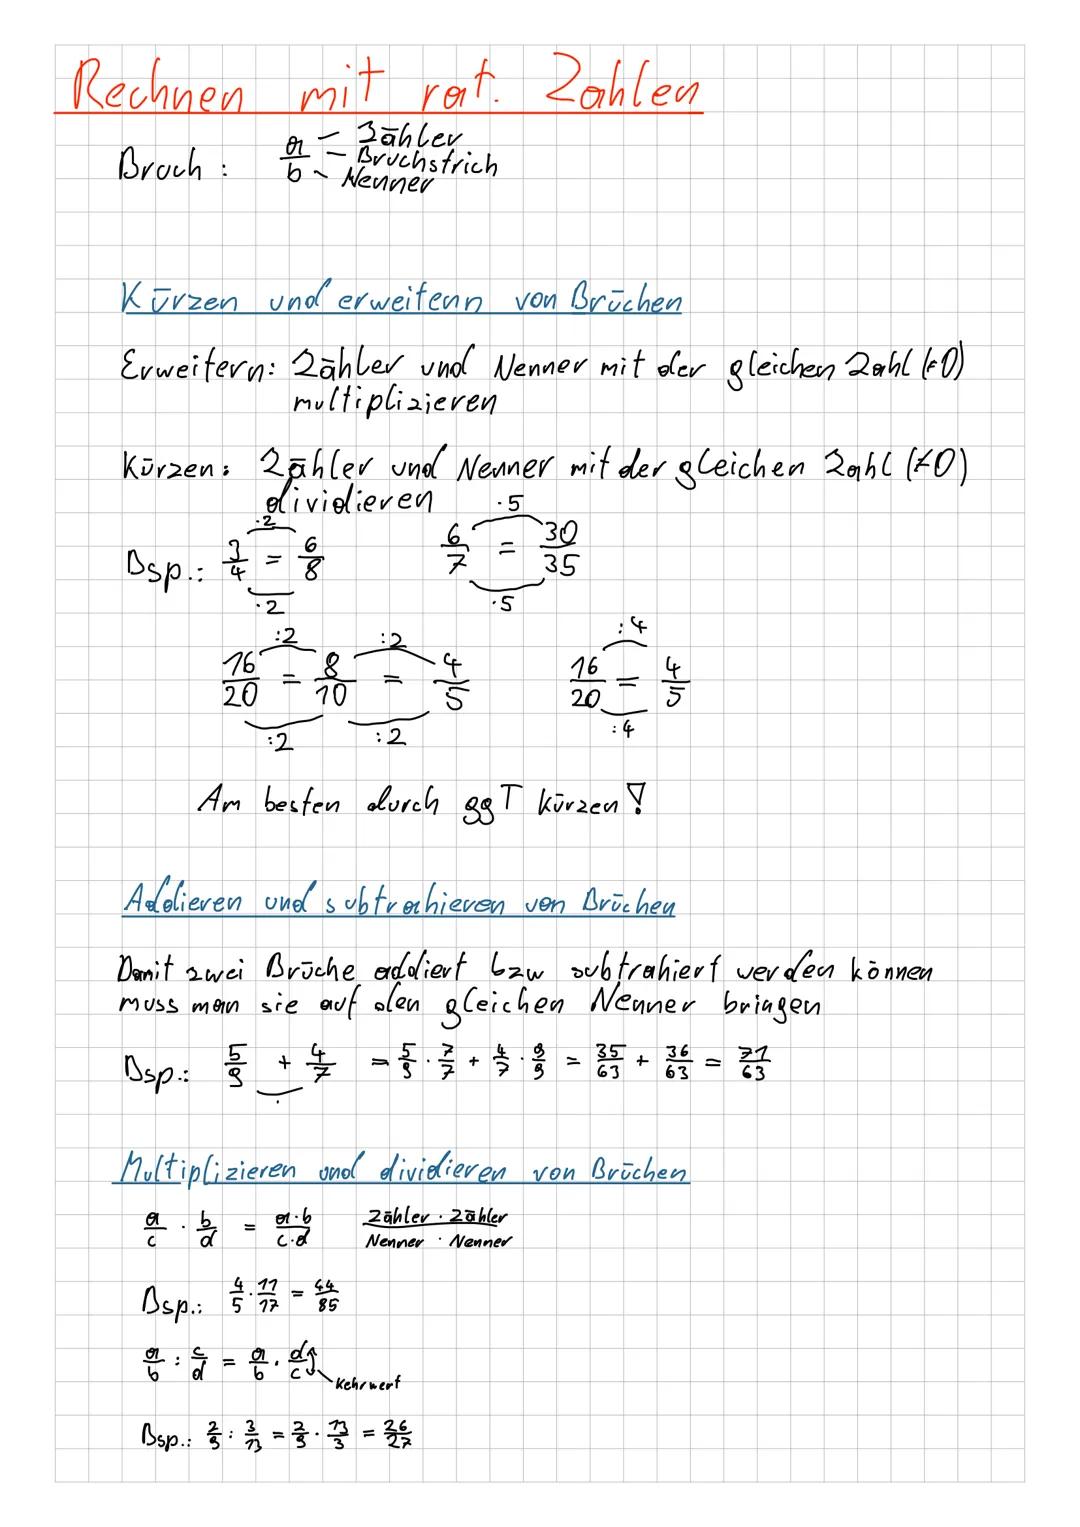 Rechnen mit rat. Zahlen
Bruch: a/b – Zähler – Bruchstrich – Nenner
Kürzen und erweitenn von Brüchen
Erweitern: Zähler und Nenner mit der gleichen Zahl (≠0)
multiplizieren
Kürzen: Zähler und Nenner mit der gleichen Zahl (≠0)
dividieren
·2 ·5
Bsp.: 3/4 = 6/8 6/7 = 30/35
·2 ·5
:2 :2 :4
16/20 = 8/10 = 4/5 16/20 = 4/5
:2 :2 :4
Am besten durch ggT kürzen!
Addieren und subtrahieren von Brüchen
Damit zwei Brüche addiert bzw subtrahiert werden können
muss man sie auf den gleichen Nenner bringen
Bsp.: 5/9 + 4/7 = 5/9 · 7/7 + 4/7 · 9/9 = 35/63 + 36/63 = 71/63
·
Multiplizieren und dividieren von Brüchen
a/c · b/d = a·b/c·d Zähler · Zähler / Nenner · Nenner
Bsp.: 4/5 · 11/17 = 44/85
a/b : c/d = a/b · d/c
Kehrwert
Bsp.: 2/9 : 3/13 = 2/9 · 13/3 = 26/27